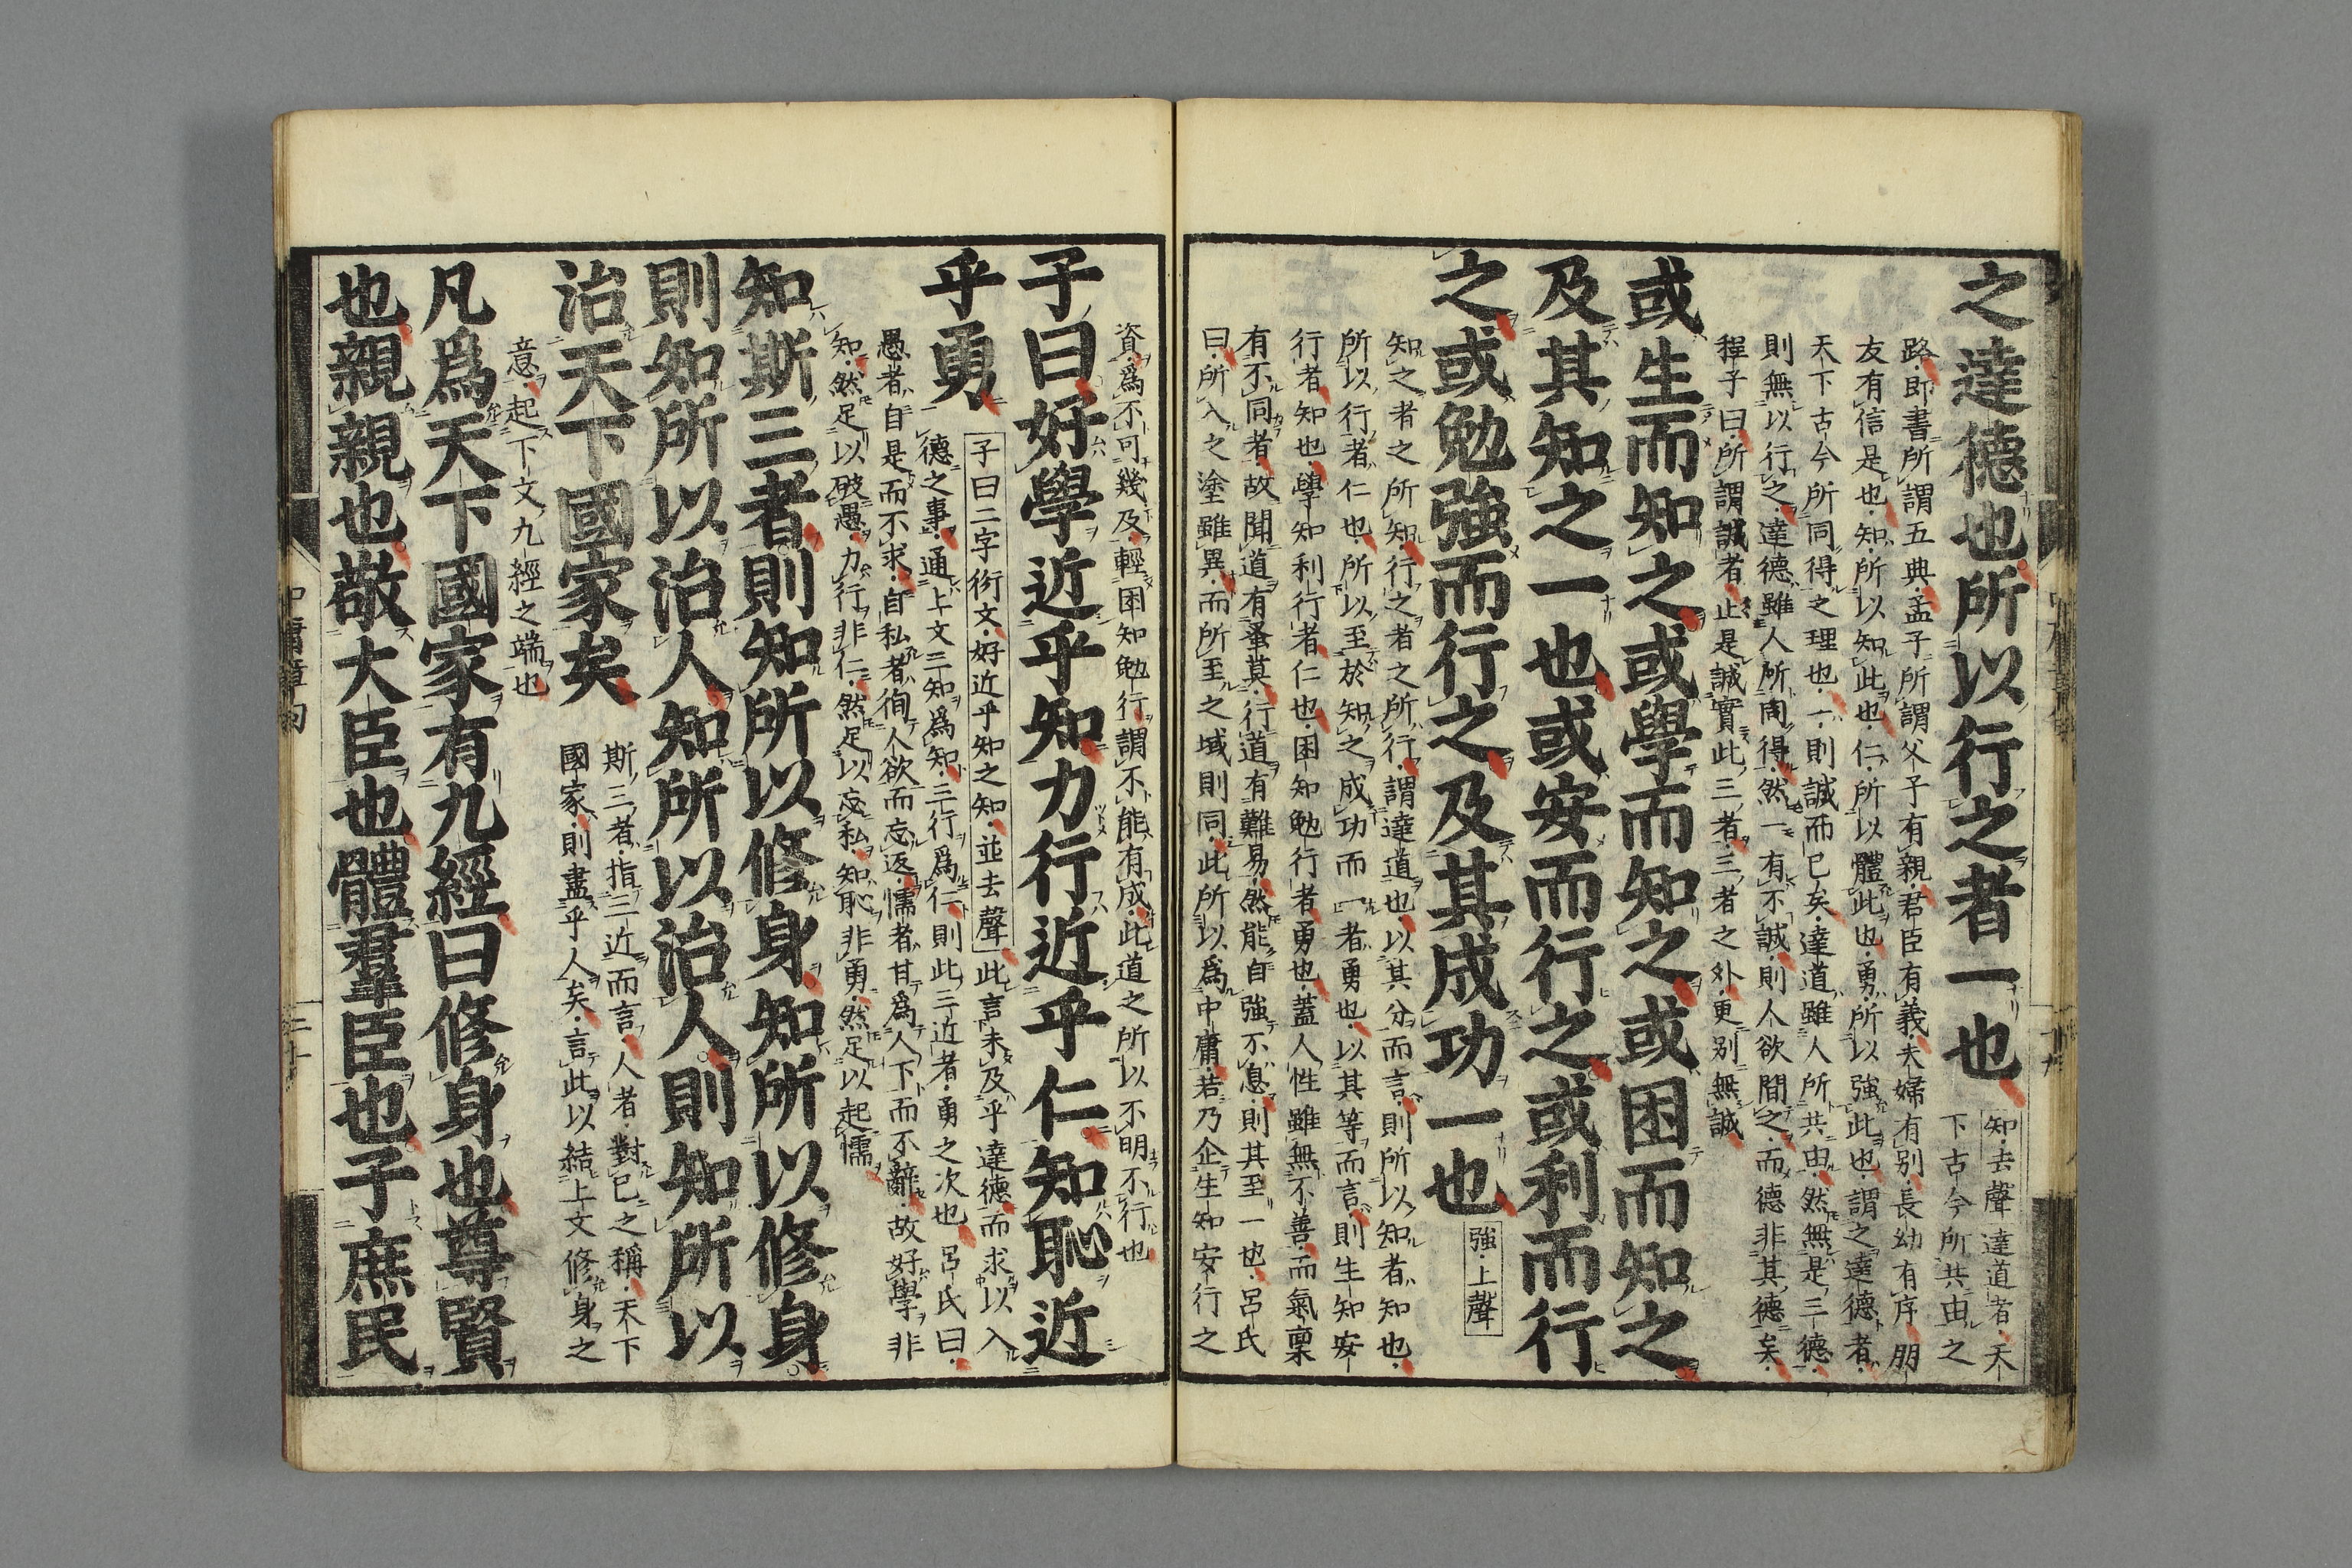 之達德也所以行之者一也
知去聲達道者天
下古今所共由之
路即書所謂五典孟子所謂父子有親君臣有義夫婦有别長幼有序朋
友有信是也知所以知此也仁所以體此也勇所以強此也謂之達德者
天下古今所同得之理也一則誠而已矣達道雖人所共由然無是三德
則無以行之達德雖人所同得然一有不誠則人欲間之而德非其德矣
程子曰所謂誠者止是誠實此三者三者之外更别無誠
或生而知之或學而知之或困而知之
及其知之一也或安而行之或利而行
之或勉強而行之及其成功一也
強上聲
知之者之所知行之者之所行謂達道也以其分而言則所以知者知也
所以行者仁也所以至於知之成功而一者勇也以其等而言則生知安
行者知也學知利行者仁也困知勉行者勇也蓋人性雖無不善而氣稟
有不同者故聞道有蚤莫行道有難易然能自強不息則其至一也呂氏
曰所入之塗雖異而所至之域則同此所以爲中庸若乃企生知安行之
資爲不可幾及輕困知勉行謂不能有成此道之所以不明不行也
子曰好學近乎知力行近乎仁知恥近
乎勇
子曰二字衍文好近乎知之知並去聲
此言未及乎達德而求以入
德之事通上文三知爲知三行爲仁則此三近者勇之次也呂氏曰
愚者自是而不求自私者徇人欲而忘返懦者甘爲人下而不辭故好學非
知然足以破愚力行非仁然足以忘私知恥非勇然足以起懦
知斯三者則知所以修身知所以修身
則知所以治人知所以治人則知所以
治天下國家矣
斯三者指三近而言人者對已之稱天下
國家則盡乎人矣言此以結上文修身之
意起下文九經之端也
凡爲天下國家有九經曰修身也尊賢
也親親也敬大臣也體羣臣也子庶民
中庸章句
二十